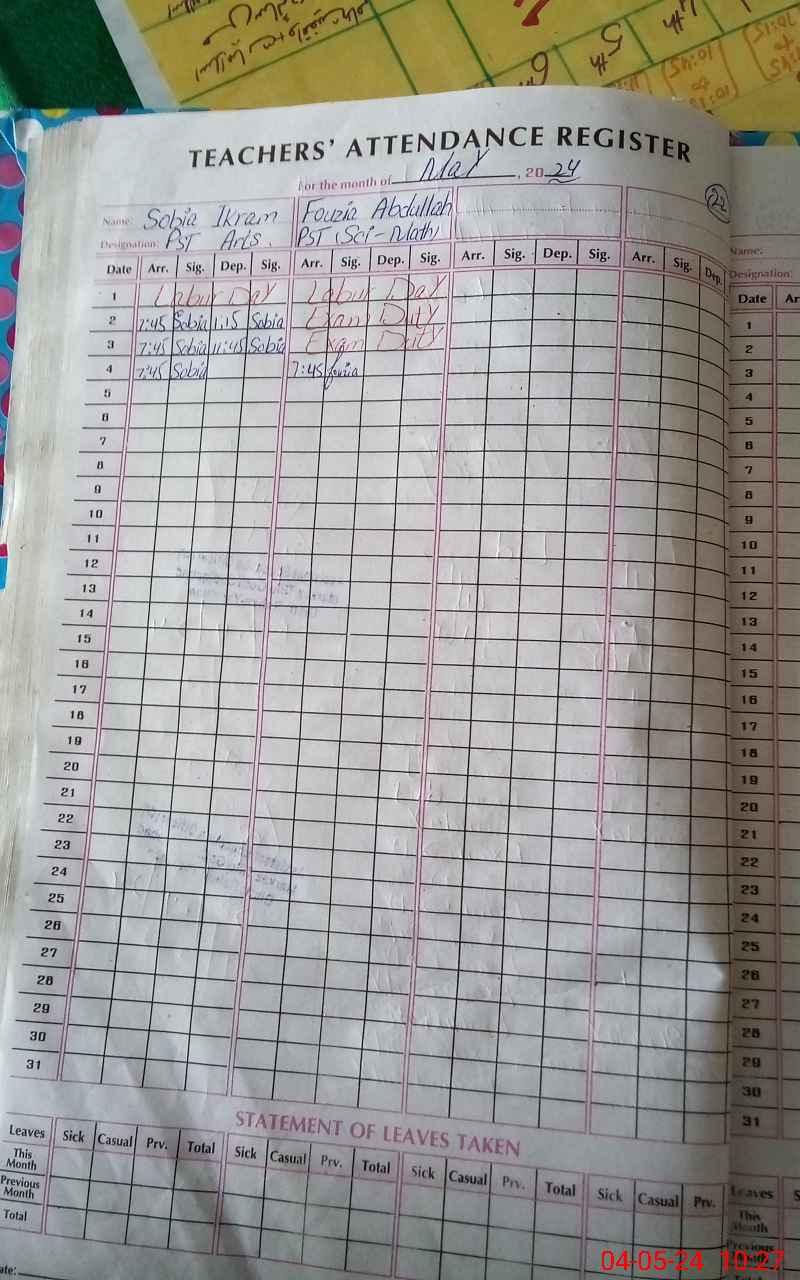 6th 5th 4th
10:45 to 10:15
TEACHERS' ATTENDANCE REGISTER
For the month of May, 2024
22
Name: Sobia Ikram Fouzia Abdullah
Designation: PST Arts. PST (Sci-Math)
Date Arr. Sig. Dep. Sig. Arr. Sig. Dep. Sig. Arr. Sig. Dep. Sig. Arr. Sig. Dep.
1 Labur Day Labur Day
2 7:45 Sobia 1:15 Sobia Exam Duty
3 7:45 Sobia 11:45 Sobia Exam Duty
4 7:45 Sobia 7:45 fouzia
5
6
7
8
9
10
11
12
13
14
15
16
17
18
19
20
21
22
23
24
25
26
27
28
29
30
31
STATEMENT OF LEAVES TAKEN
Leaves Sick Casual Prv. Total Sick Casual Prv. Total Sick Casual Prv. Total Sick Casual Prv.
This Month
Previous Month
Total
ate:
Name:
Designation:
Date Ar
1
2
3
4
5
6
7
8
9
10
11
12
13
14
15
16
17
18
19
20
21
22
23
24
25
26
27
28
29
30
31
Leaves S
This Month
Previous Month
04-05-24 10:27